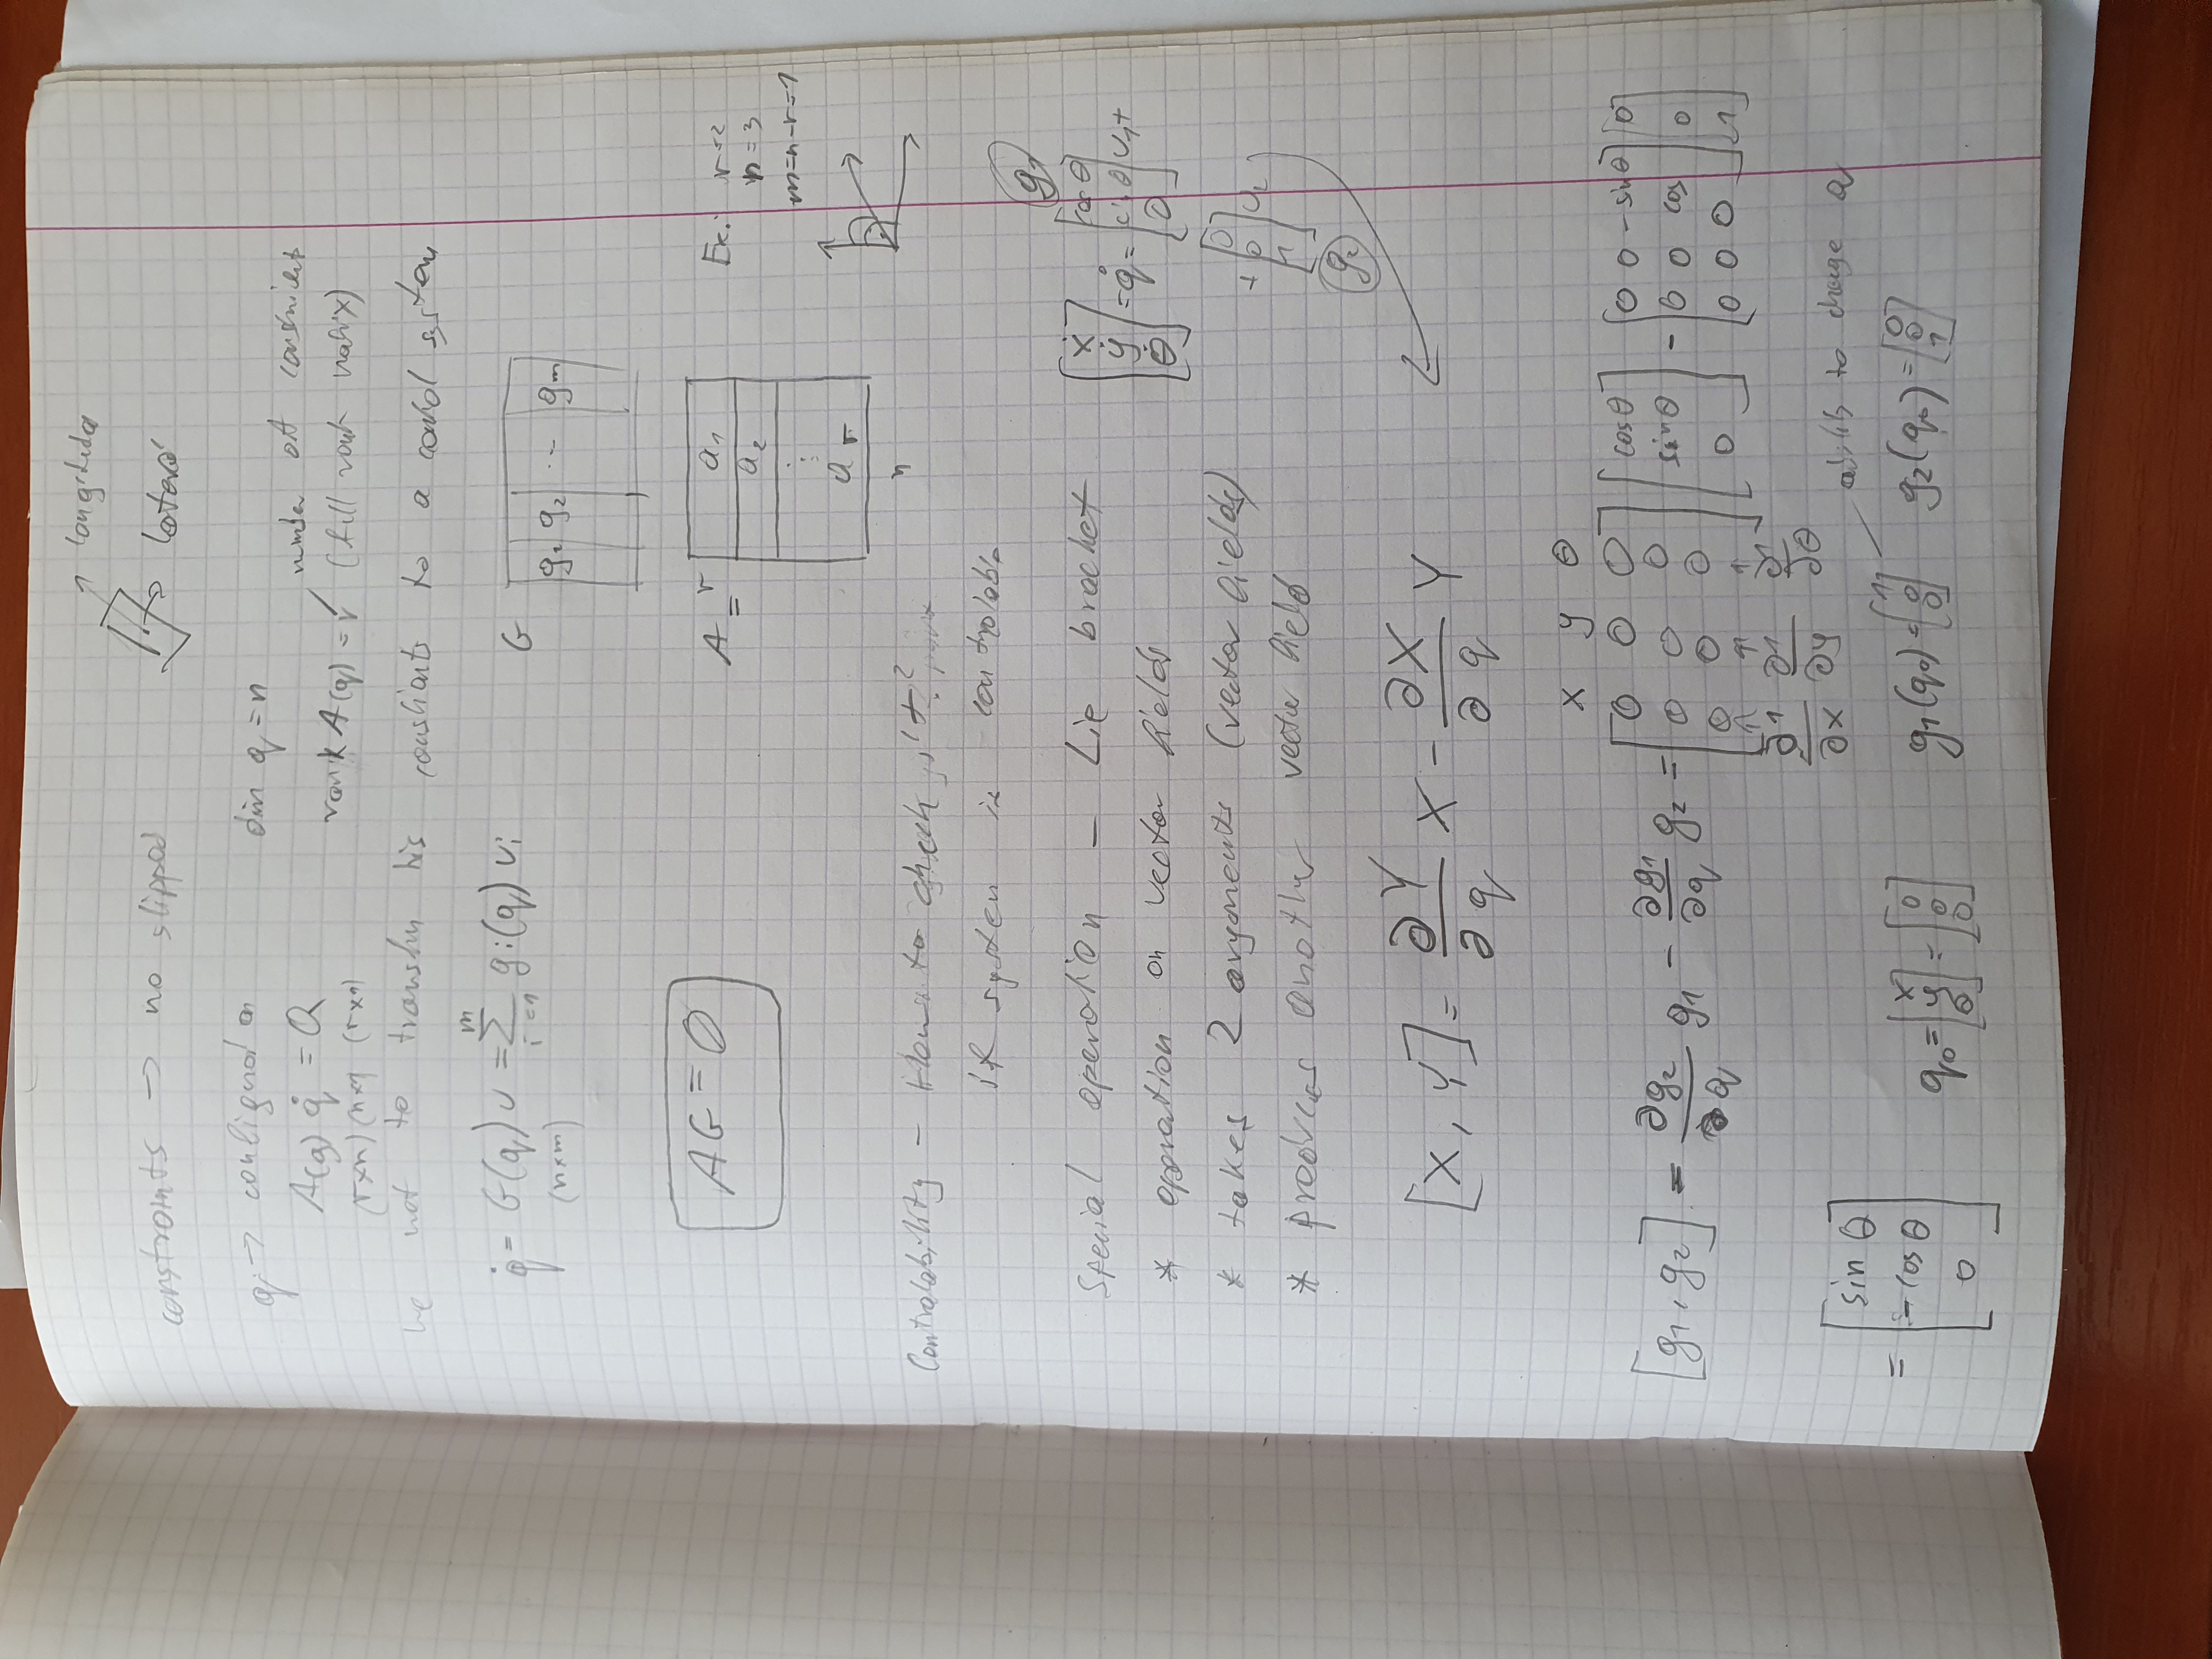 longituda
constraints → no slipped
lateral
q → configuration dim q = n
number of constraints
A(q) q̇ = 0 rank A(q) = r (full rank matrix)
(r×n) (n×1) (r×1)
to transform this constraints to a control system
q̇ = G(q) u = ∑ᵢ₌₁ᵐ gᵢ(q) uᵢ
(n×m)
G g₁ g₂ ... gₘ
AG = 0
A = r a₁ a₂ ⋮ aᵣ n
Ex.: r = 2
n = 3
m = n - r = 1
Controlability - How to check it?
if system is controlable
Special operation - Lie bracket
* operation on vector fields
* takes 2 arguments (vector fields)
* produces another vector field
g₁
[ẋ ẏ θ̇] = q̇ = [cos θ sin θ 0] u₁ +
+ [0 0 1] u₂
g₂
[X, Y] = ∂Y/∂q X - ∂X/∂q Y
x y θ
[g₁, g₂] = ∂g₂/∂q g₁ - ∂g₁/∂q g₂ = [0 0 0; 0 0 0; 0 0 0] [cosθ; sinθ; 0] - [0 0 -sinθ; 0 0 cos; 0 0 0] [0; 0; 1]
↑ ↑ ↑
∂1/∂x ∂1/∂y ∂1/∂θ
ability to change q
= [sin θ; -cos θ; 0] q₀ = [x; y; θ] = [0; 0; 0] g₁(q₀) = [1; 0; 0] g₂(q₀) = [0; 0; 1]